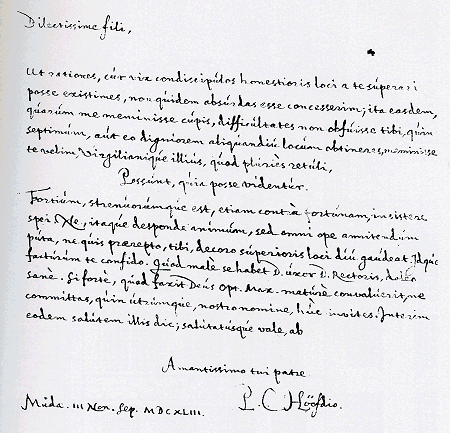 Dilectissime fili,
Ut rationes, cúr vix condiscipúlos honestioris loci a te súperari
posse existimes, non qúidem absúrdas esse concesserim; ita easdem,
qúarúm me meminisse cúpis, difficúltates non obfúisse tibi, qúin
septimúm, aút eo digniorem aliqúandiú locúm obtineres, meminisse
te velim, Virgilianiqúe illiús, qúod plúriès retúli,
Possúnt, qúia posse videntúr.
Fortiúm, strenúorúmqúe est, etiam contrà fortúnam, insistere
spei. Ne, itaqúe desponde animúm, sed omni ope annitendúm
púta, ne qúis præcepto, tibi, decoro súperioris loci diú gaúdeat. Idqúe
factúrúm te confido. Qúòd malè se habet D. úxor D. Rectoris, doleo
sanè. Si fortè, qúod faxit Deús Opt. Max. matúrè convalúerit, ne
committas, qúin útrúmqúe, nostro nomine, húc invites. Interim
eodem salútem illis dic; salútatúsqúe vale, ab
Amantissimo túi patre
P. C. Hóófdio.
Múda. III Non. Sep. MDCXLIII.